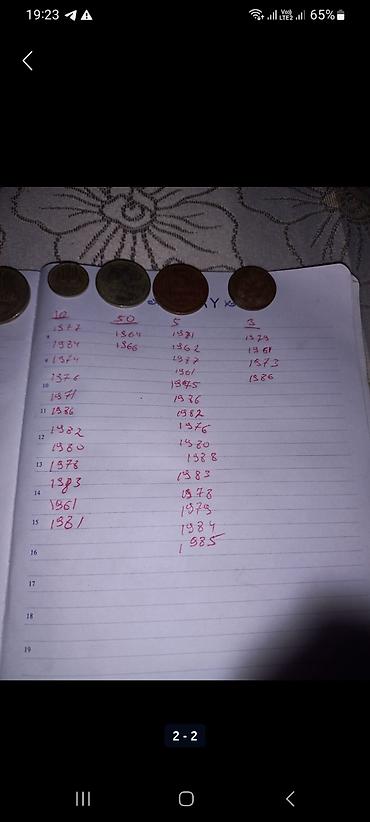 19:23
Vo))
LTE2
65%
AY
10 50 5 3
1977 1964 1981 1979
1984 1966 1962 1961
1974 1987 1973
1976 1961 1986
1971 1975
1986 1986
1982 1982
1980 1976
1978 1980
1983 1988
1961 1983
1981 1978
1979
1984
1985
9
10
11
12
13
14
15
16
17
18
19
2 - 2